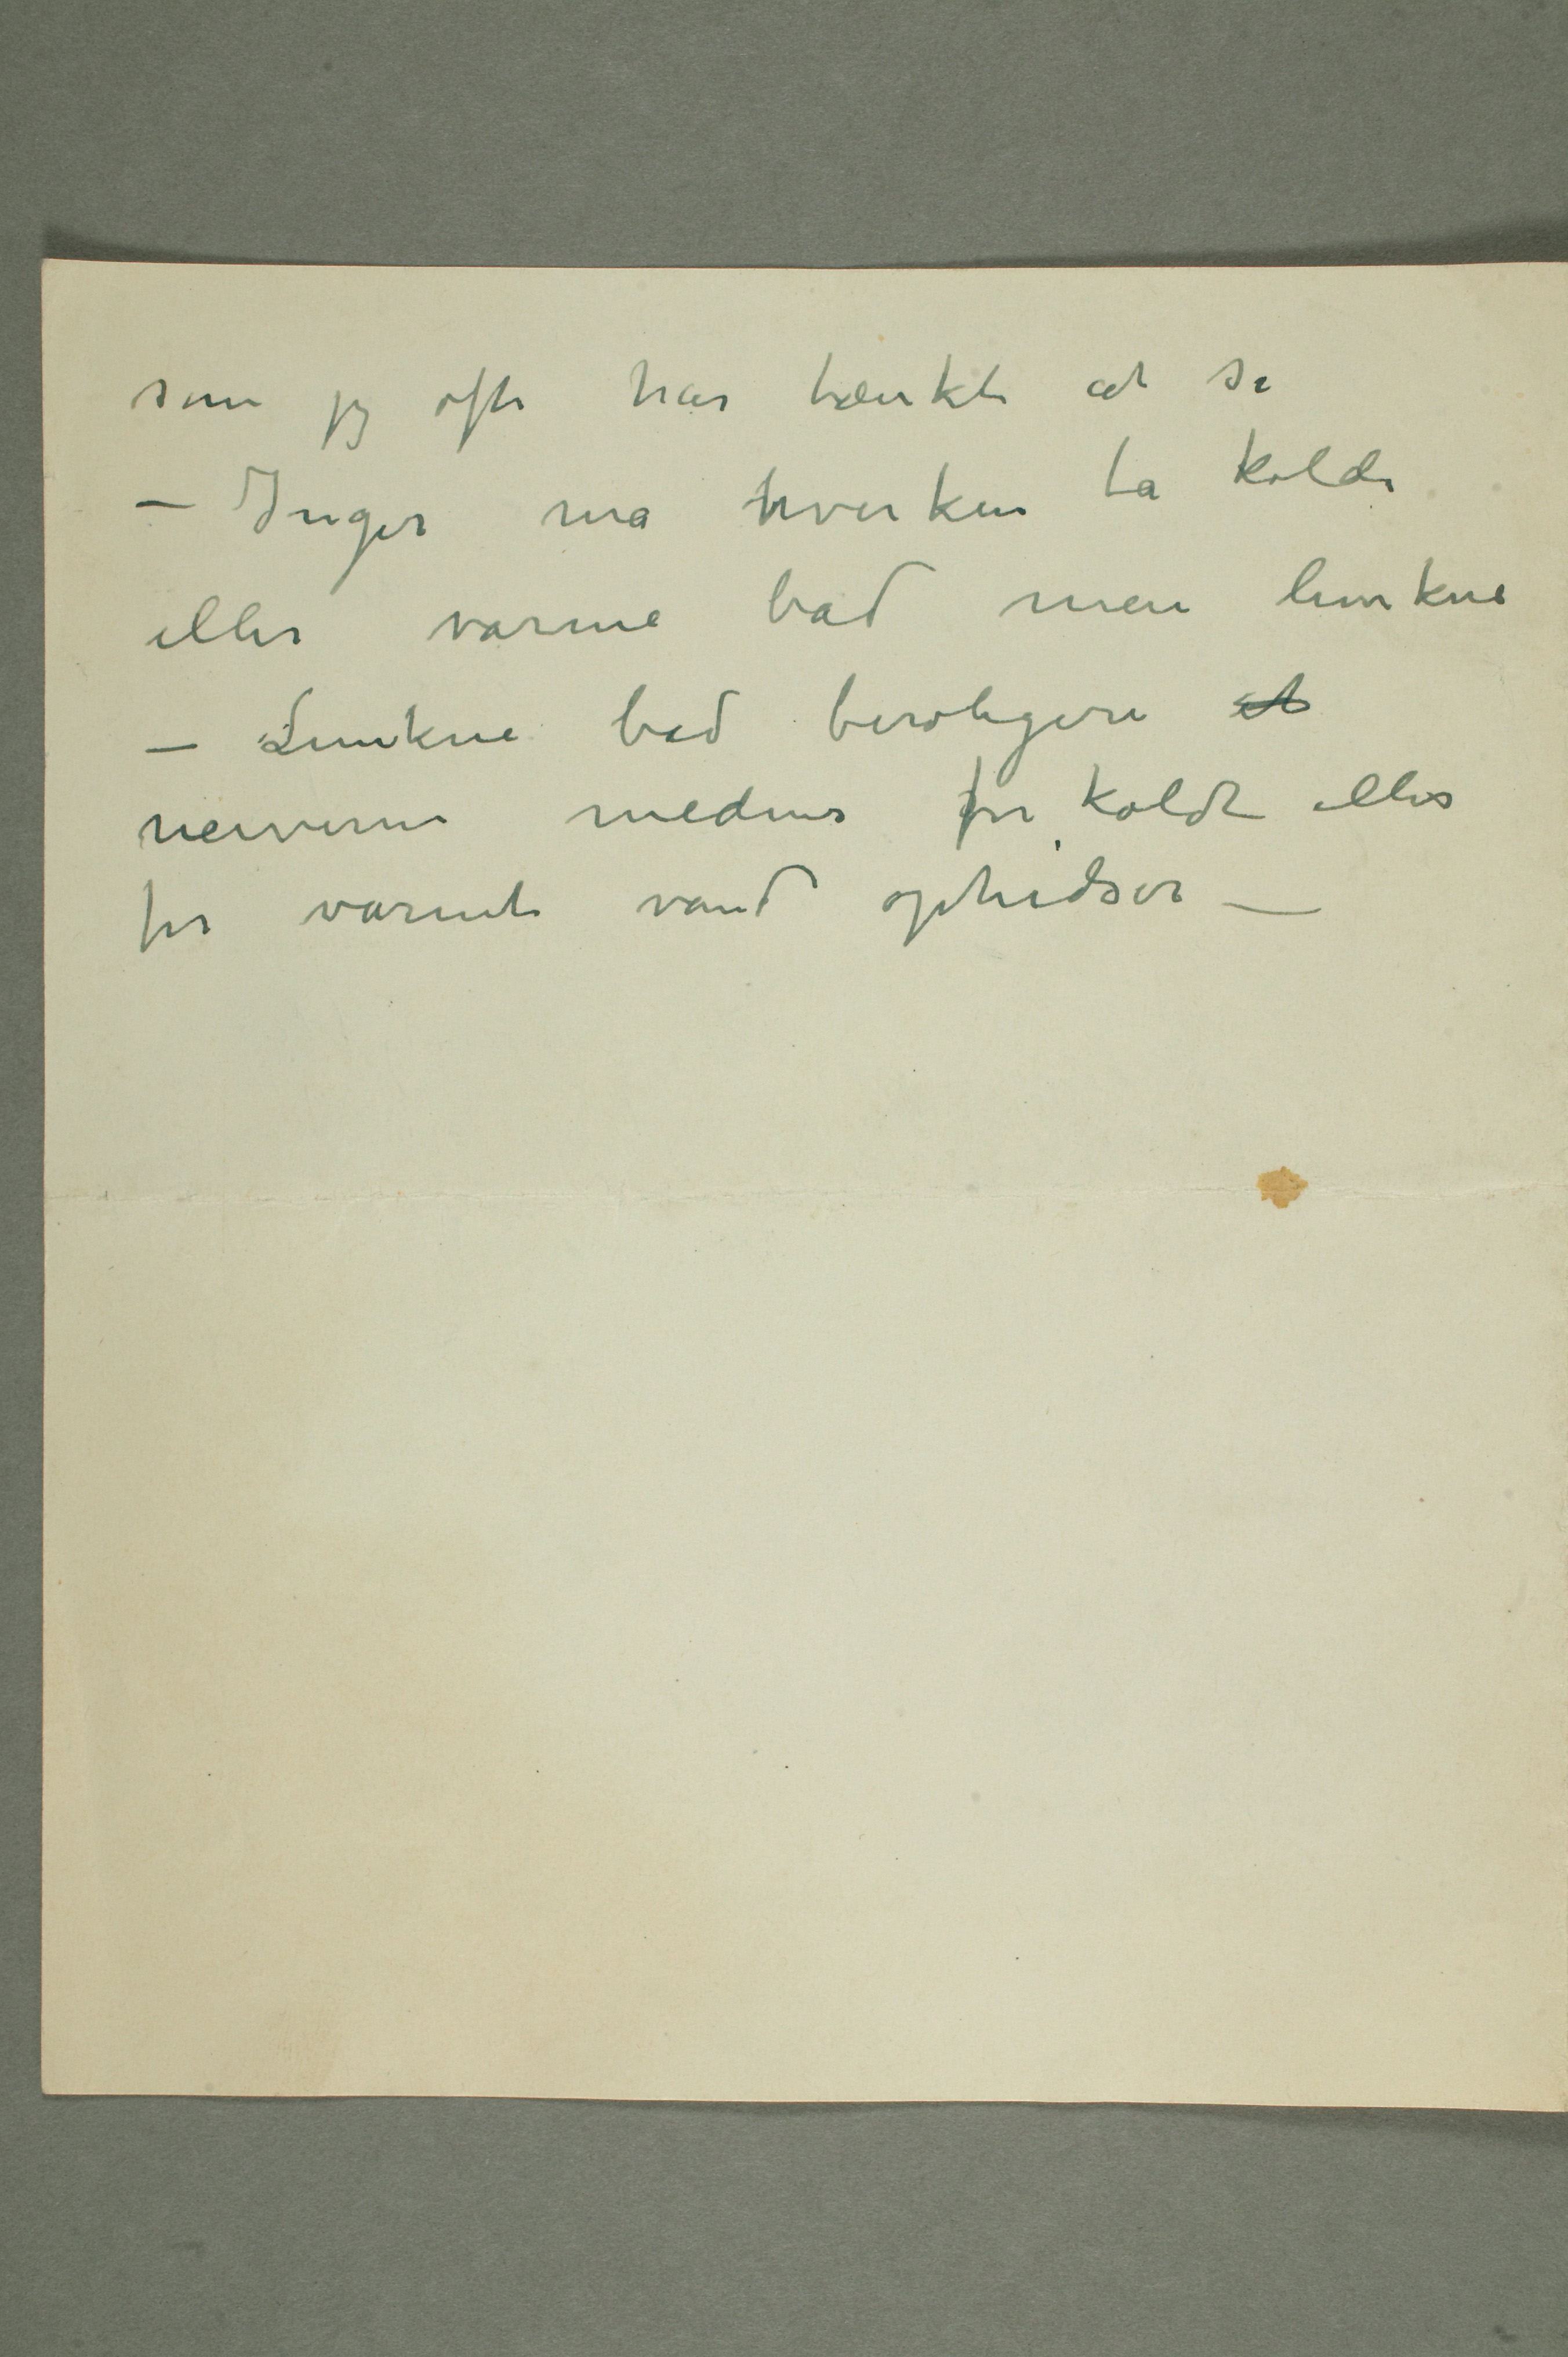 som jeg ofte har tænkt at se
– Inger må hverken ta kolde
eller varme bad men lunkne
– Lunkne bad beroligere
nerverne medens for koldt eller
for varmt vand ophidser –